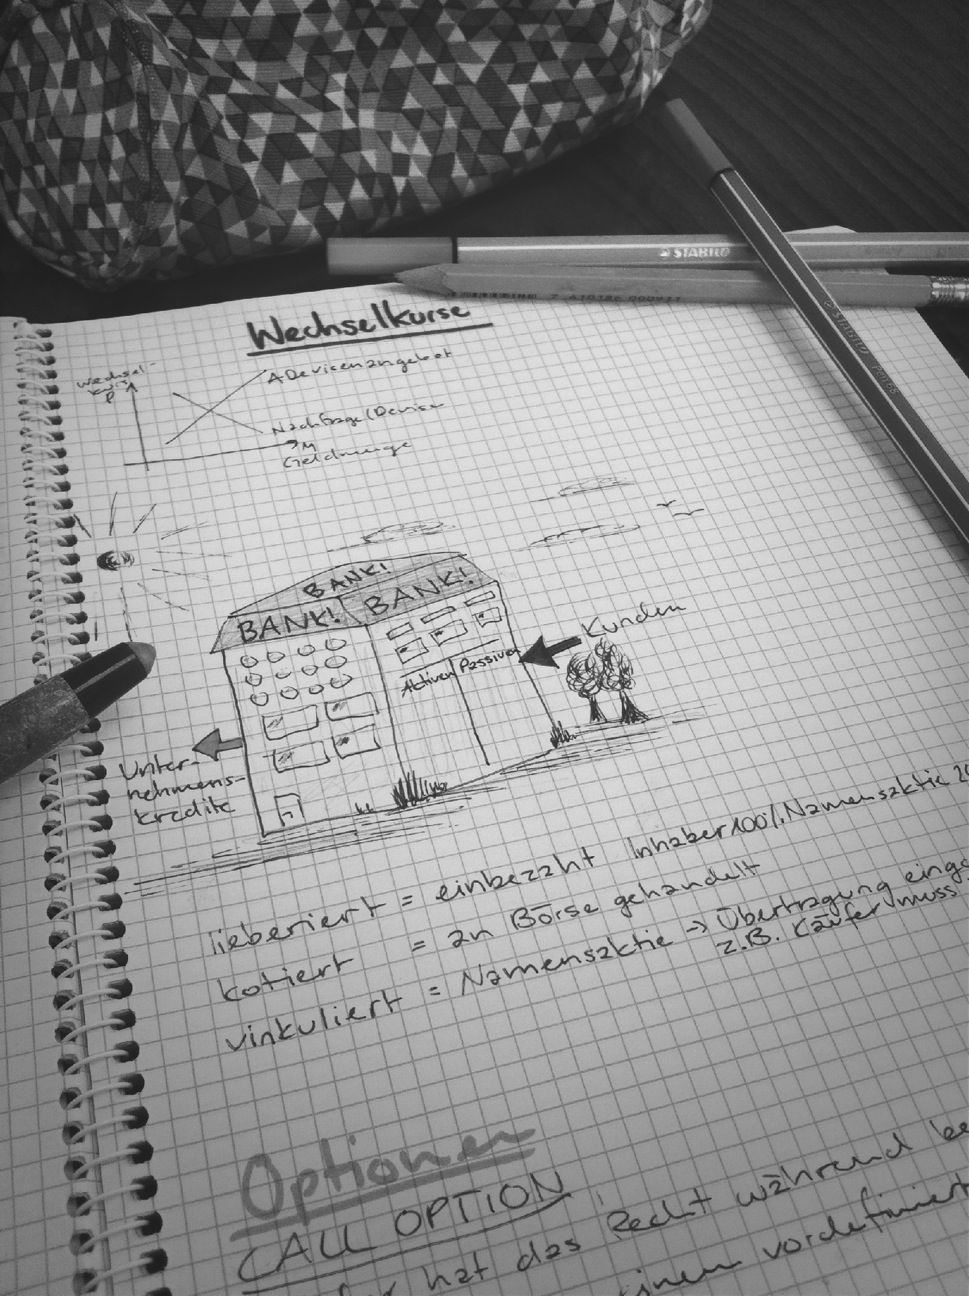 STABILO
STABILO Pen 68
Wechselkurse
Wechsel-
kurs
P
A Devisenangebot
Nachfrage (Devise
M
Geldmenge
BANK!
BANK! BANK!
Kunden
Aktiven Passiven
Unter-
nehmens-
kredite
lieberiert = einbezaht Inhaber 100%, Namensaktie
kotiert = an Börse gehandelt
vinkuliert = Namensaktie → Übertragung einge
z.B. Käufer muss
Optionen
CALL OPTION
hat das Recht während be
einem vordefiniert